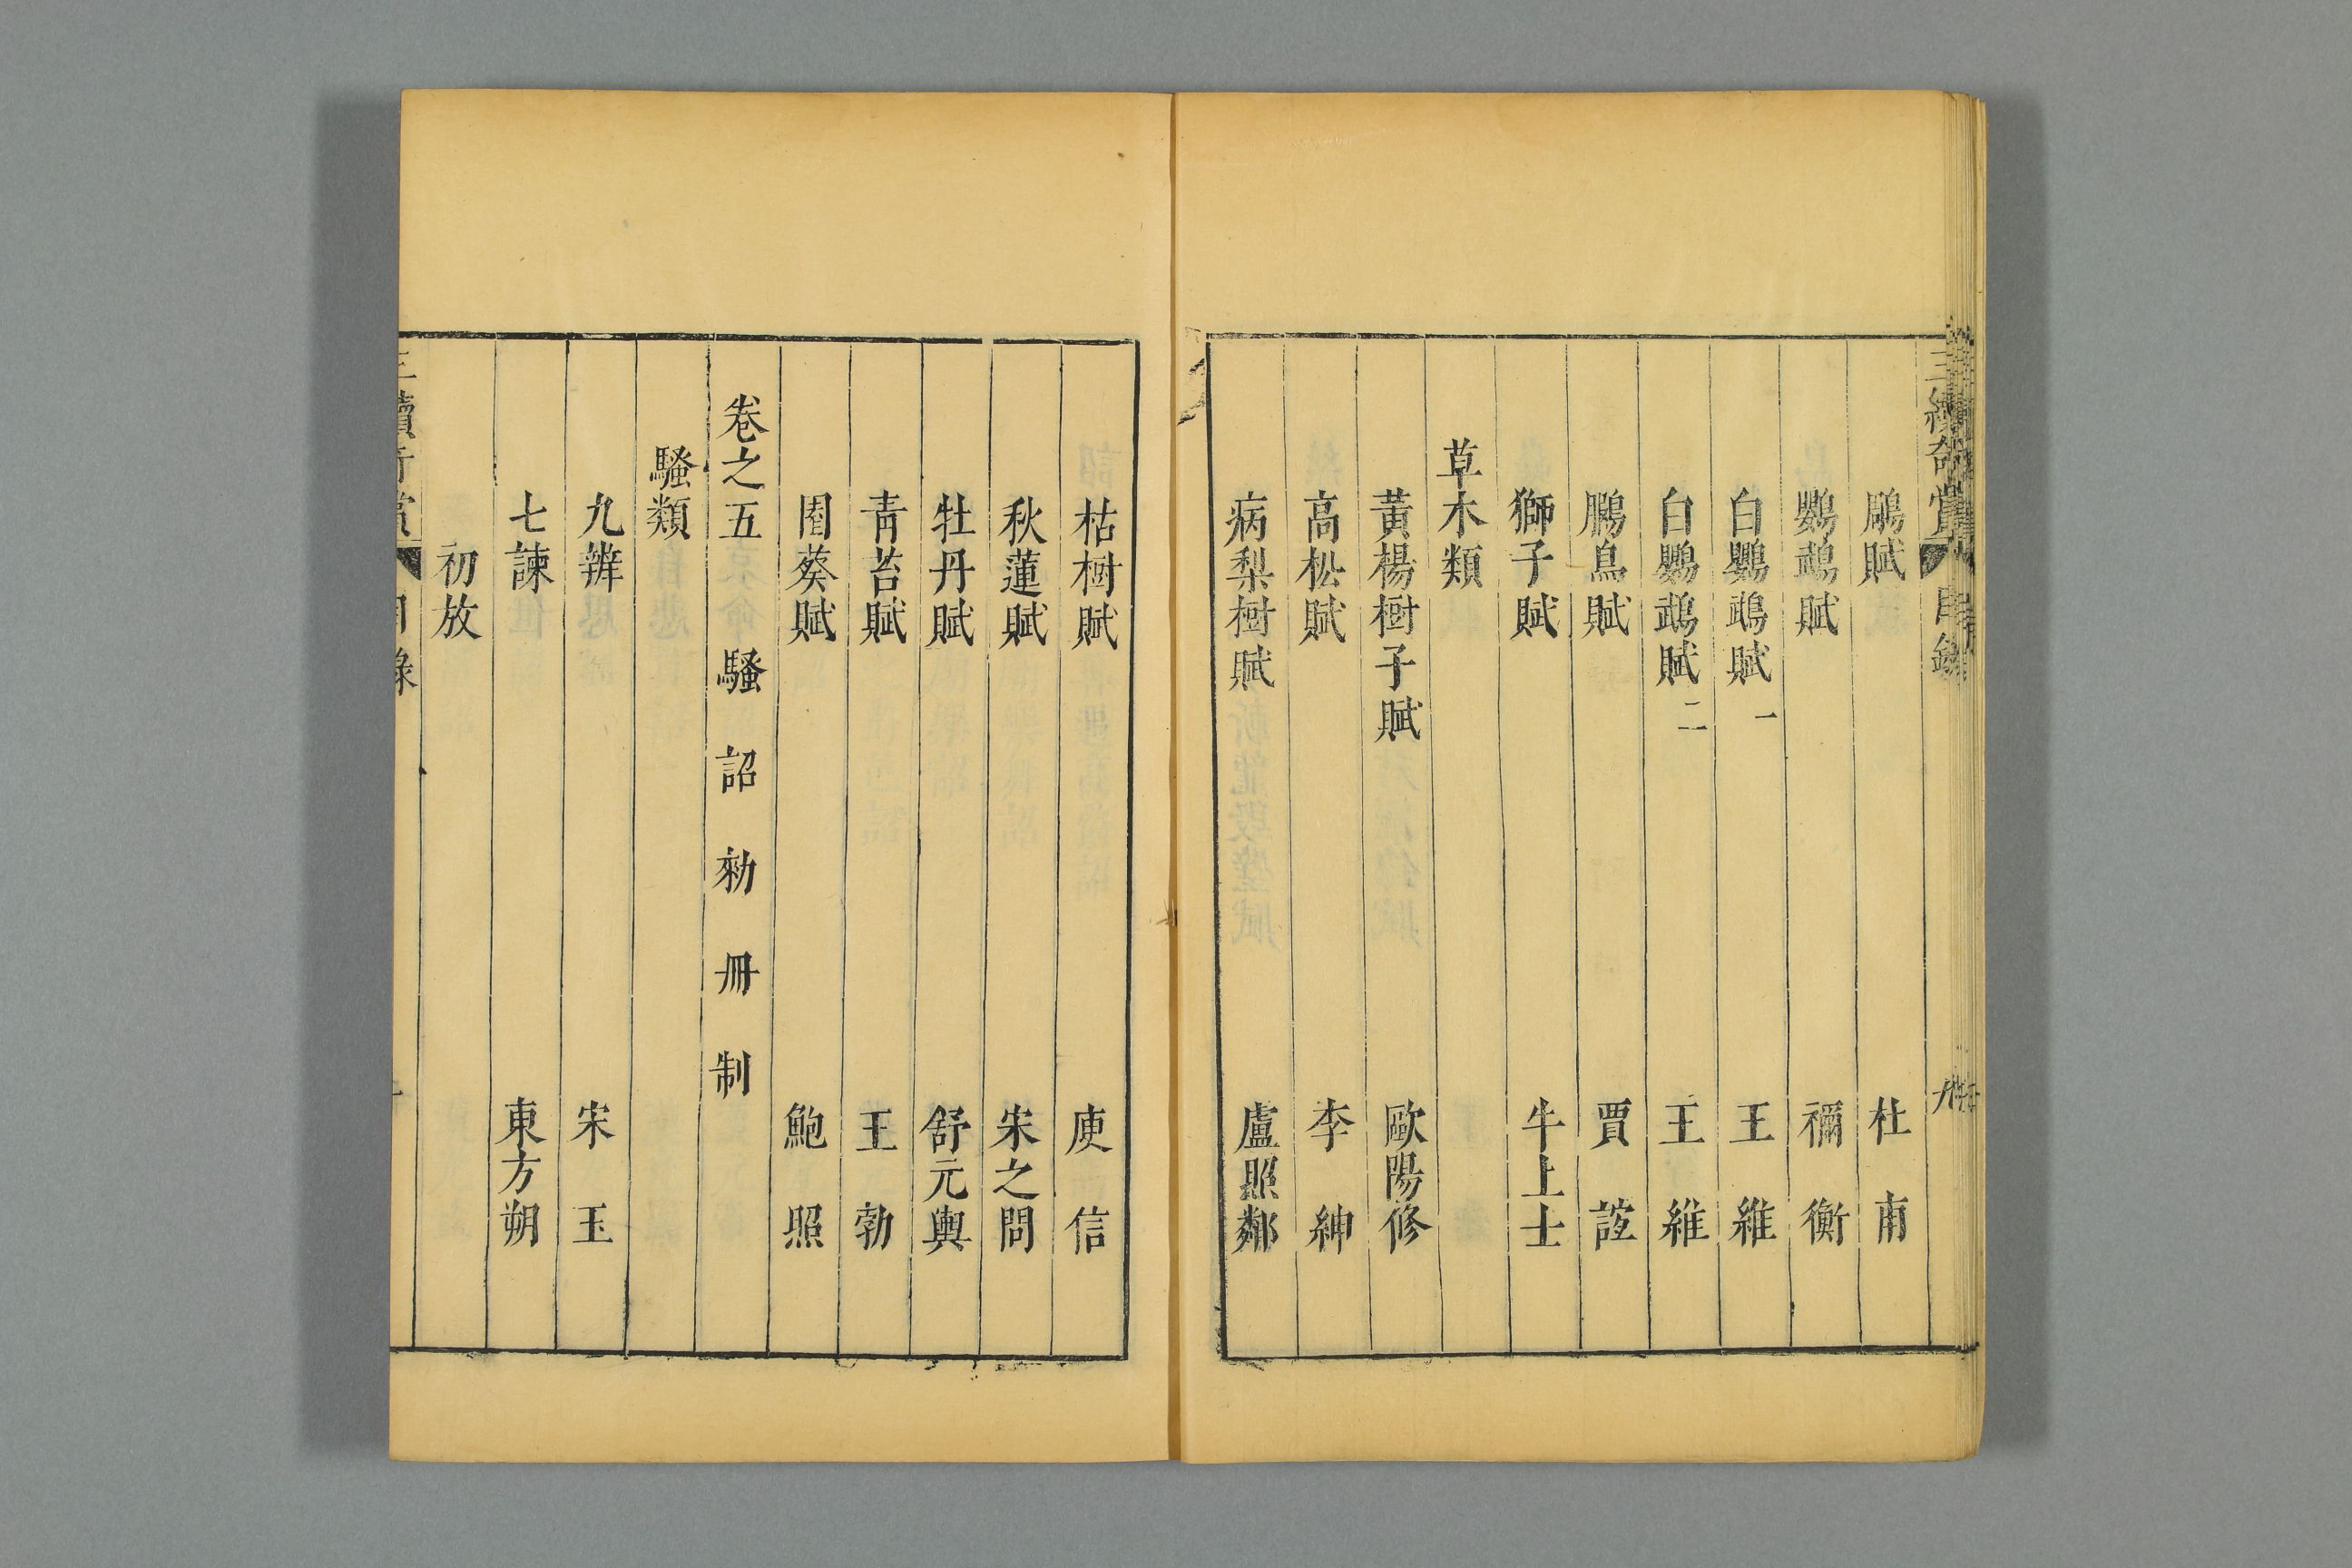 三續奇賞 目錄
鵰賦 杜甫
鸚鵡賦 禰衡
白鸚鵡賦 一 王維
白鸚鵡賦 二 王維
鵩鳥賦 賈誼
獅子賦 牛上士
草木類
黃楊樹子賦 歐陽修
高松賦 李紳
病梨樹賦 盧照鄰
枯樹賦 庾信
秋蓮賦 宋之問
牡丹賦 舒元輿
青苔賦 王勃
園葵賦 鮑照
卷之五 騷 詔 勑 冊 制
騷類
九辨 宋玉
七諫 東方朔
初放
三續奇賞 目錄